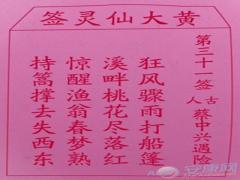 黄大仙灵签
第三十一签 古人 蔡中兴遇险
狂风骤雨打船篷
溪畔桃花尽落红
惊醒渔翁春梦熟
持篙撑去失西东